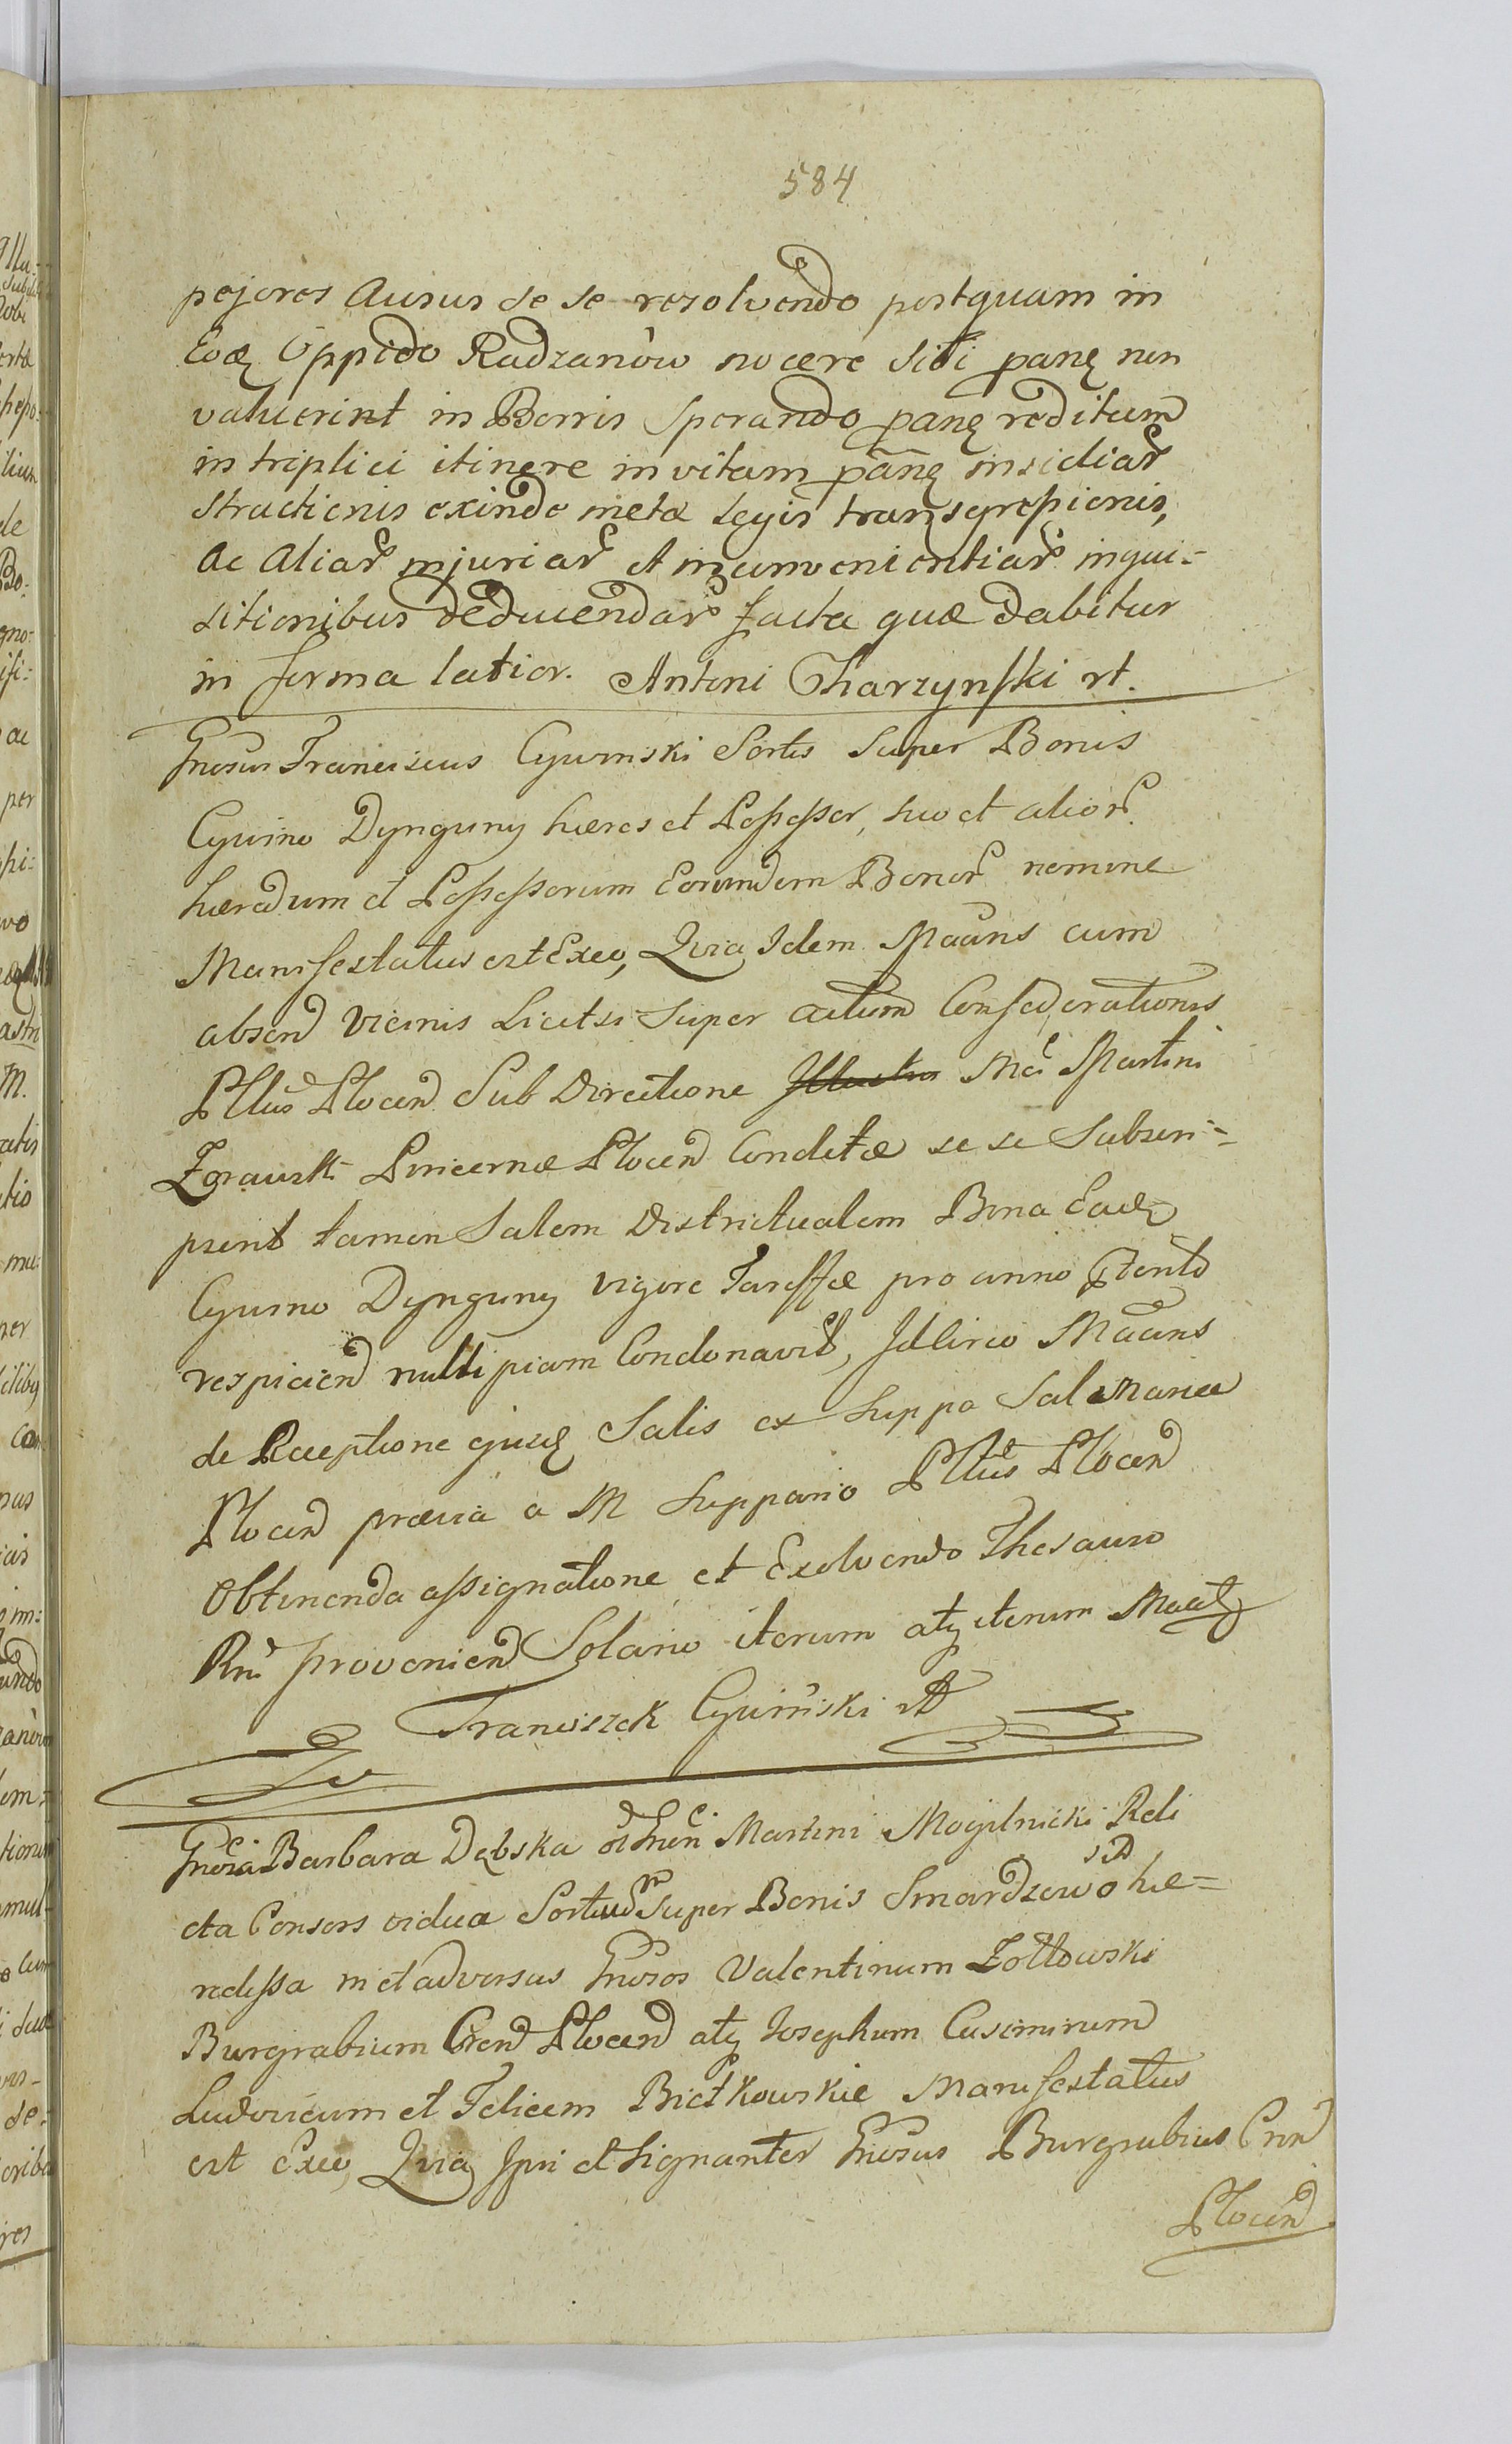 584
pejores Ausus se se resolvendo postquam in
Eodẽ Oppido Radzanòw nocere sibi pañẽ non
valuerint in Borris Sperando pañẽ reditum
in triplici itinere in vitam pãnẽ insidiar̃
structionis exinde metæ Legis transgressionis,
Ac Aliar̃ injuriar̃ et inconvenientiar̃ inqui=
sitionibus deducendar̃ facta quæ dabitur
in forma latior. Antoni Charzynski rt.
Gnosus Franciscus Cywinski Sortis Super Bonis
Cywino Dynguny hæres et Possessor, suo et alior̃
hæredum et Possessorum Eorundem Bonor̃ nomine
Manifestatus est Exeo, Quia Idem Maãns cum
absen̄ vicinis Licet si Super actum Confederationis
Pllũs Plocen̄ Sub Directione Illustris Mci Martini
Zgrawsk Pincernæ Plocen̄ Conditæ se se Subscri=
pserit tamen Salem districtualem Bona Eadẽ
Cywino Dynguny vigore Tariffæ pro anno pñti
respicien̄ nulli piam Condonavit, Idcirco Maãns
de Receptione ejusdẽ Salis ex Suppa Salinaria
Plocen̄ prævia a M Suppario Pllũs Plocen̄
Obtinenda assignatione et Exolvendo Thesauro
Rni provenien̄ Solario iterum atq iterum Maãt
Franciszek Cywiński rt
Gnosa Barbara Dębska ol Gnen̄ Martini Mogilnicki Reli
cta Consors vidua Sortium Super Bonis Smardzewo hæ=
redissa in et adversus Gnosos Valentinum Zołtowski
Burgrabium Cren̄ Plocen̄ atq Josephum Casimirum
Ludovicum et Felicem Bietkowskie Manifestatus
est Exeo, Quia Ipsi et Signanter Gnosus Burgrabius Crn̄
Plocen̄